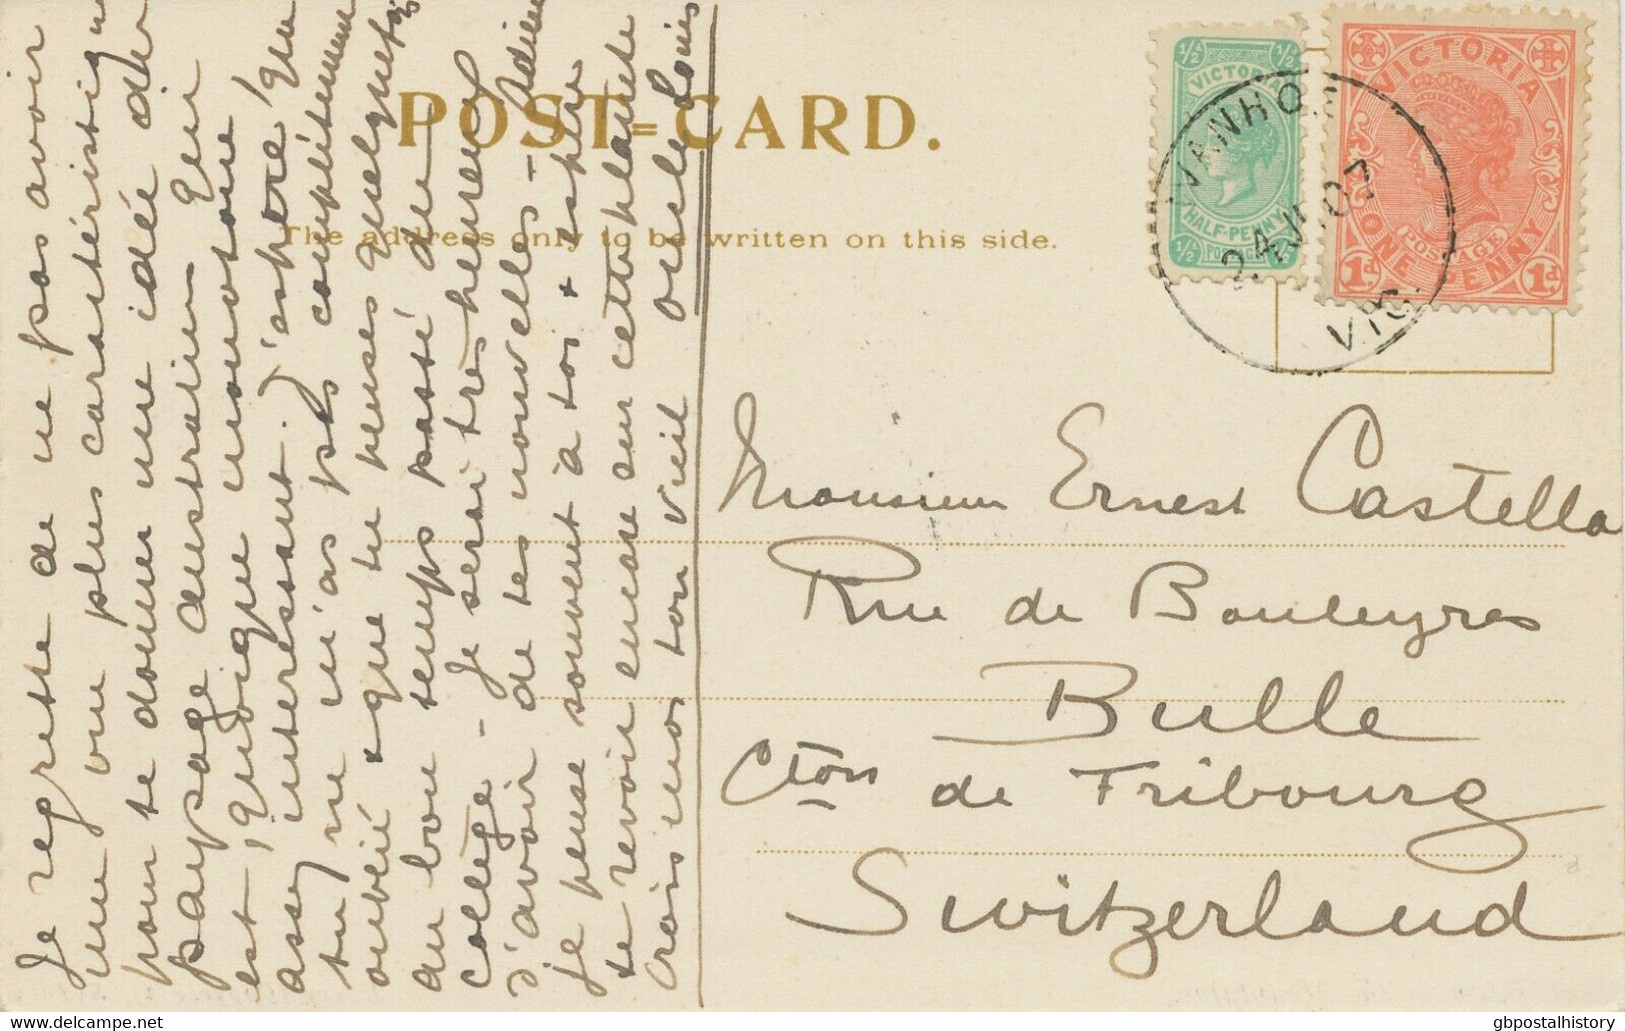 POST=CARD.
The address only to be written on this side.
1/2 1/2
VICTORIA
HALF-PENNY
1/2 1/2
VICTORIA
POSTAGE
ONE PENNY
1d 1d
IVANHOE
24 JU 07
VIC.
Monsieur Ernest Castella
Rue de Bouleyres
Bulle
Cton de Fribourg
Switzerland
Je regrette de ne pas avoir
une vue plus caractéristique
pour te donner une idée du
paysage australien qui
est, quoique monotone,
assez intéressant. J'espère que
tu ne m'as pas complètement
oublié & que tu penses quelquefois
au bon temps passé au
collège - Je serai très heureux
d'avoir de tes nouvelles - Adieu
je pense souvent à toi & espère
te revoir encore sur cette planète
Crois moi ton vieil
Louis
gbpostalhistory